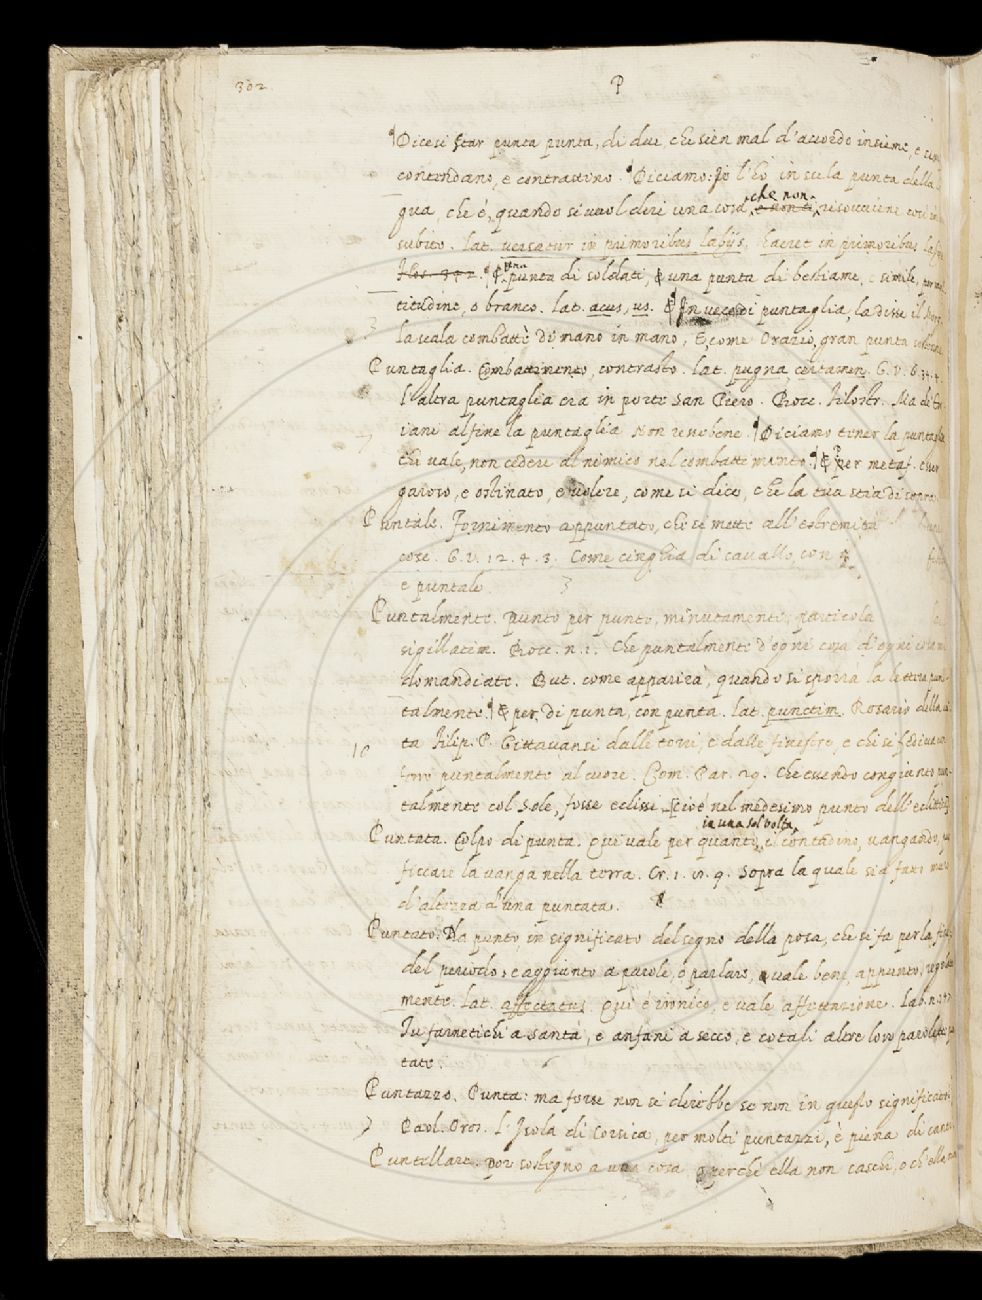 302.
P
¶Dicesi star punta punta, di due, che sien mal d'accordo insieme, e
contendano, e contrastino. ¶Diciamo: Io l'ho in su la punta della
gua, che è, quando si vuol dire una cosa, che non, e non ci, risovviene così in
subito. Lat. versatur in primoribus labijs, haeret in primoribus
Flos. 342. ¶ E una punta di soldati, E una punta di bestiame, e simile, per
titudine, o branco. Lat. acus, us. ¶ In vece di puntaglia, la disse il
la vala combattè di mano in mano, E, come Orazio, gran punta
Puntaglia. Combattimento, contrasto. Lat. pugna, certamen. G. V. 6. 34. 4.
l'altra puntaglia era in porte San Piero. Bocc. Filostr. Ma de'
iani al fine la puntaglia Non resse bene. ¶Diciamo tener la puntaglia
che vale, non cedere al nimico nel combattimento. ¶E per metaf. esser
garoso, e ostinato, e volere, come si dice, che la tua stia di sopra.
Puntale. Fornimento appuntato, che si mette all'estremità
cose. G. V. 12. 4. 3. Come cinghia di cavallo, con
e puntale
Puntalmente. Punto per punto, minutamente, particola
sigillatim. Bocc. n. 1. Che puntalmente d'ogni cosa d'ogni cosa mi
domandiate. But. come apparirà, quando si sporrà la lettera pun-
talmente. ¶E per, di punta, con punta. Lat. punctim. Rosario della
ta Filip. P. Gittavansi dalle torri, e dalle finestre, e chi si fediva
puntalmente al cuore. Com. Par. 29. Che essendo congiunto pun-
talmente col Sole, fosse eclissi cioè nel medesimo punto dell'eclittica
Puntata. Colpo di punta. Qui vale per quanto, in una sol volta, il contadino, vangando,
ficcare la vanga nella terra. Cr. 1. 9. Sopra la quale sia
d'altezza d'una puntata.
Puntato. Da punto in significato del segno della posa, che si fa per la
del periodo, e aggiunto a parole, o parlare, vale bene, appunto,
mente. Lat. affectatus Qui è ironico, e vale affettazione. Lab. n.
Tu farnetichi a santà, e anfani a secco, e cotali altre loro parolette
tate.
Puntazzo. Punta: ma forse non si direbbe se non in questo significato.
Paol. Oros. L'Isola di Corsica, per molti puntazzi, è piena di
Puntellare. Por sostegno a una cosa o perchè ella non caschi, o ch'ella